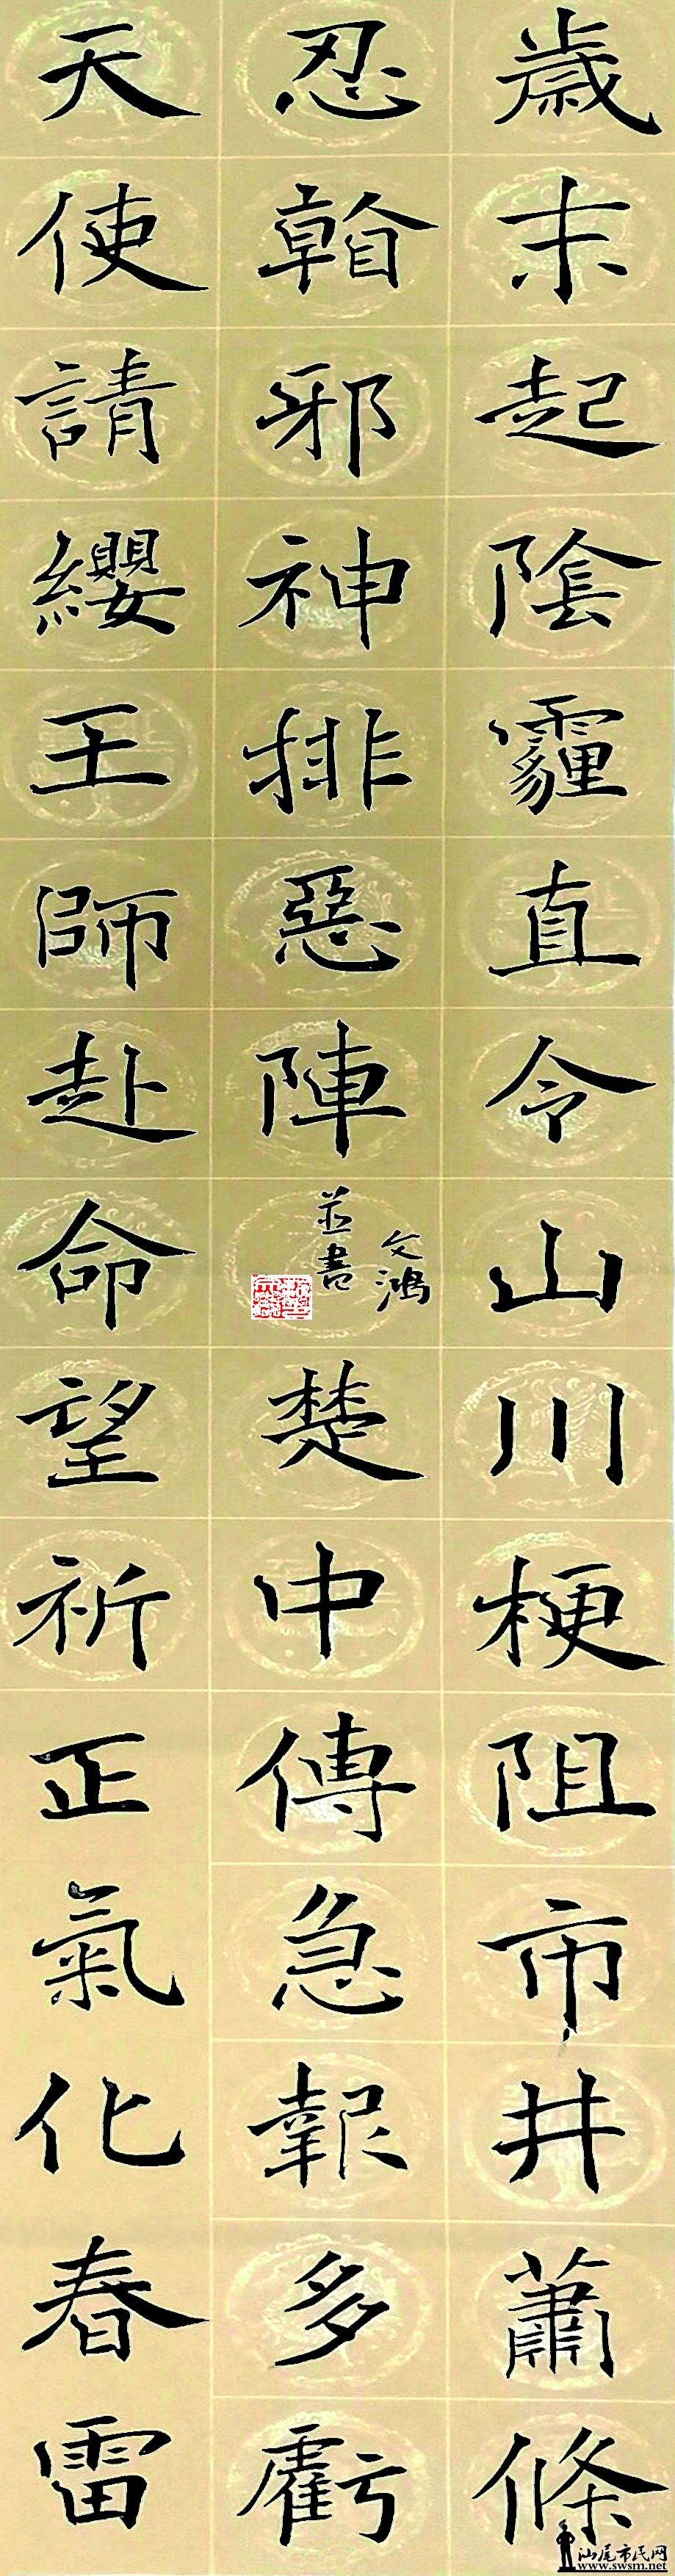 歲末起陰霾直令山川梗阻市井蕭條
忍看邪神排惡陣
文鴻
並書
楚中傳急報多虧
天使請纓王師赴命望祈正氣化春雷
汕尾市民网
www.swsm.net